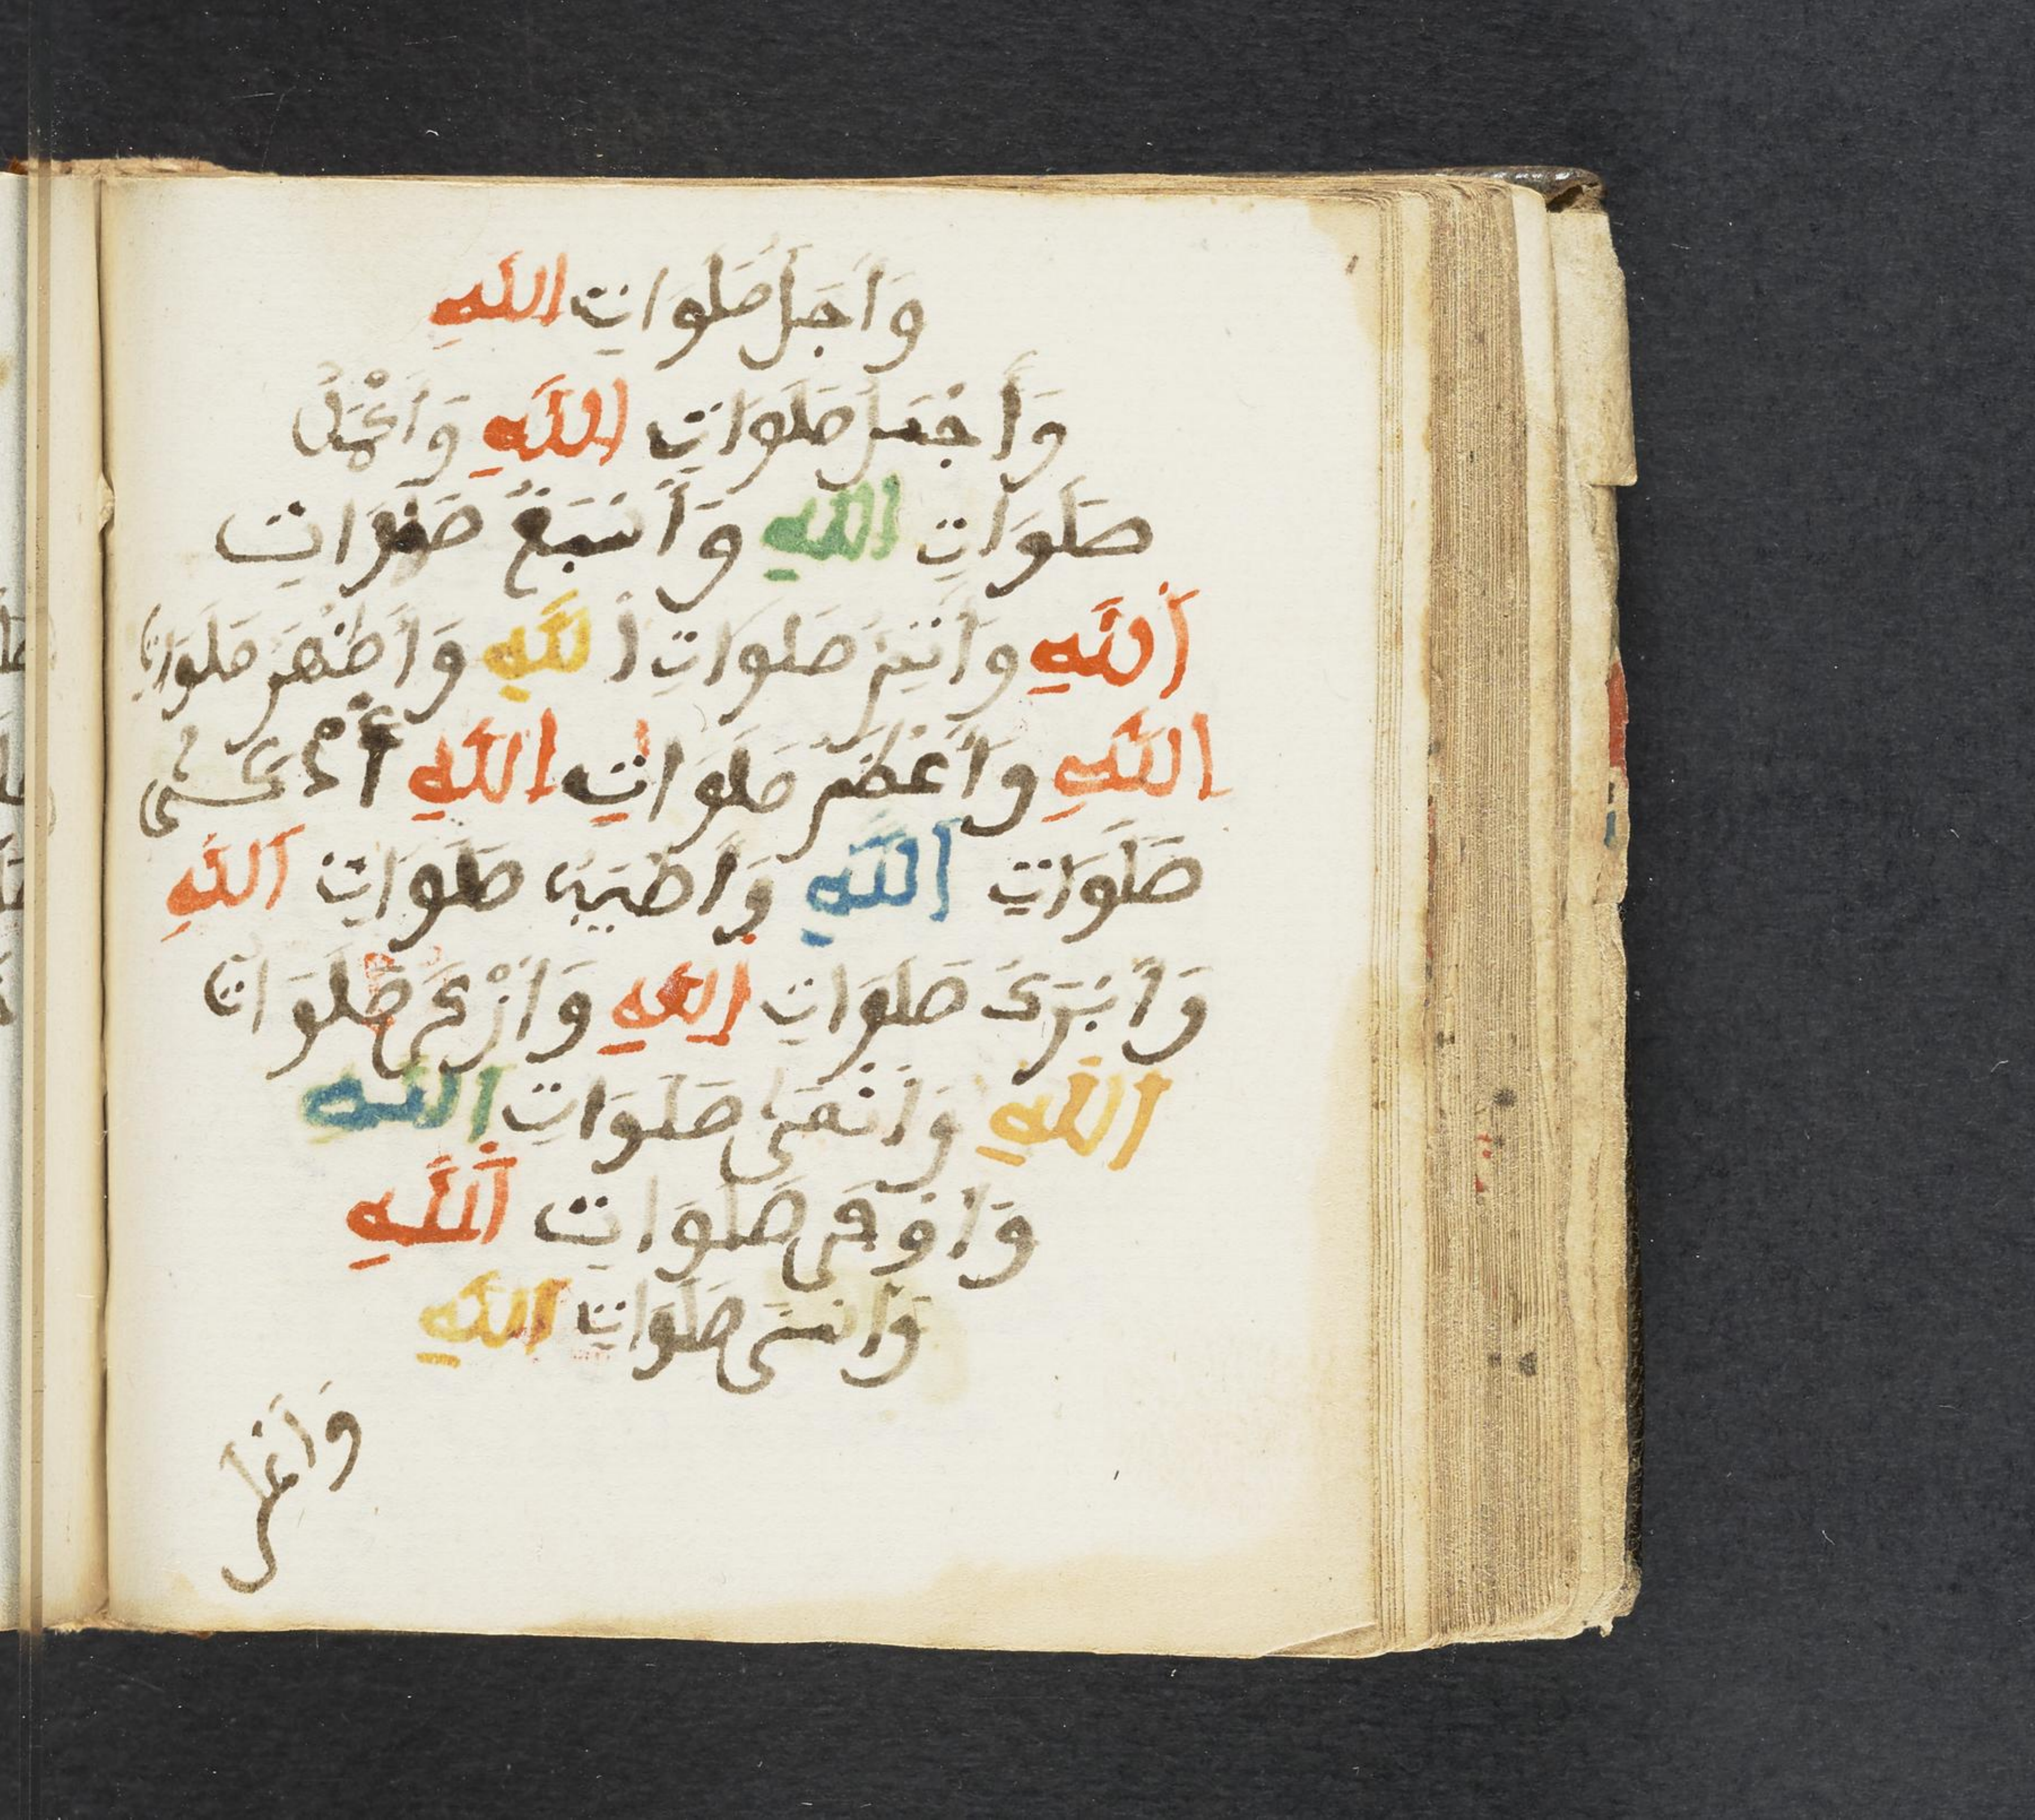 وَأَجَلُّ صَلَوَاتِ اللَّهِ
وَأَجْمَلُ صَلَوَاتِ اللَّهِ وَأَكْمَلُ
صَلَوَاتِ اللَّهِ وَأَسْبَغُ صَلَوَاتِ
اللَّهِ وَأَتَمُّ صَلَوَاتِ اللَّهِ وَأَظْهَرُ صَلَوَاتِ
اللَّهِ وَأَعْظَمُ صَلَوَاتِ اللَّهِ أَذْكَى
صَلَوَاتِ اللَّهِ وَأَطْيَبُ صَلَوَاتِ اللَّهِ
وَأَبْرَكُ صَلَوَاتِ اللَّهِ وَأَزْكَى صَلَوَاتِ
اللَّهِ وَأَنْمَى صَلَوَاتِ اللَّهِ
وَأَوْفَى صَلَوَاتِ اللَّهِ
وَأَسْنَى صَلَوَاتِ اللَّهِ
وَأَعْلَى